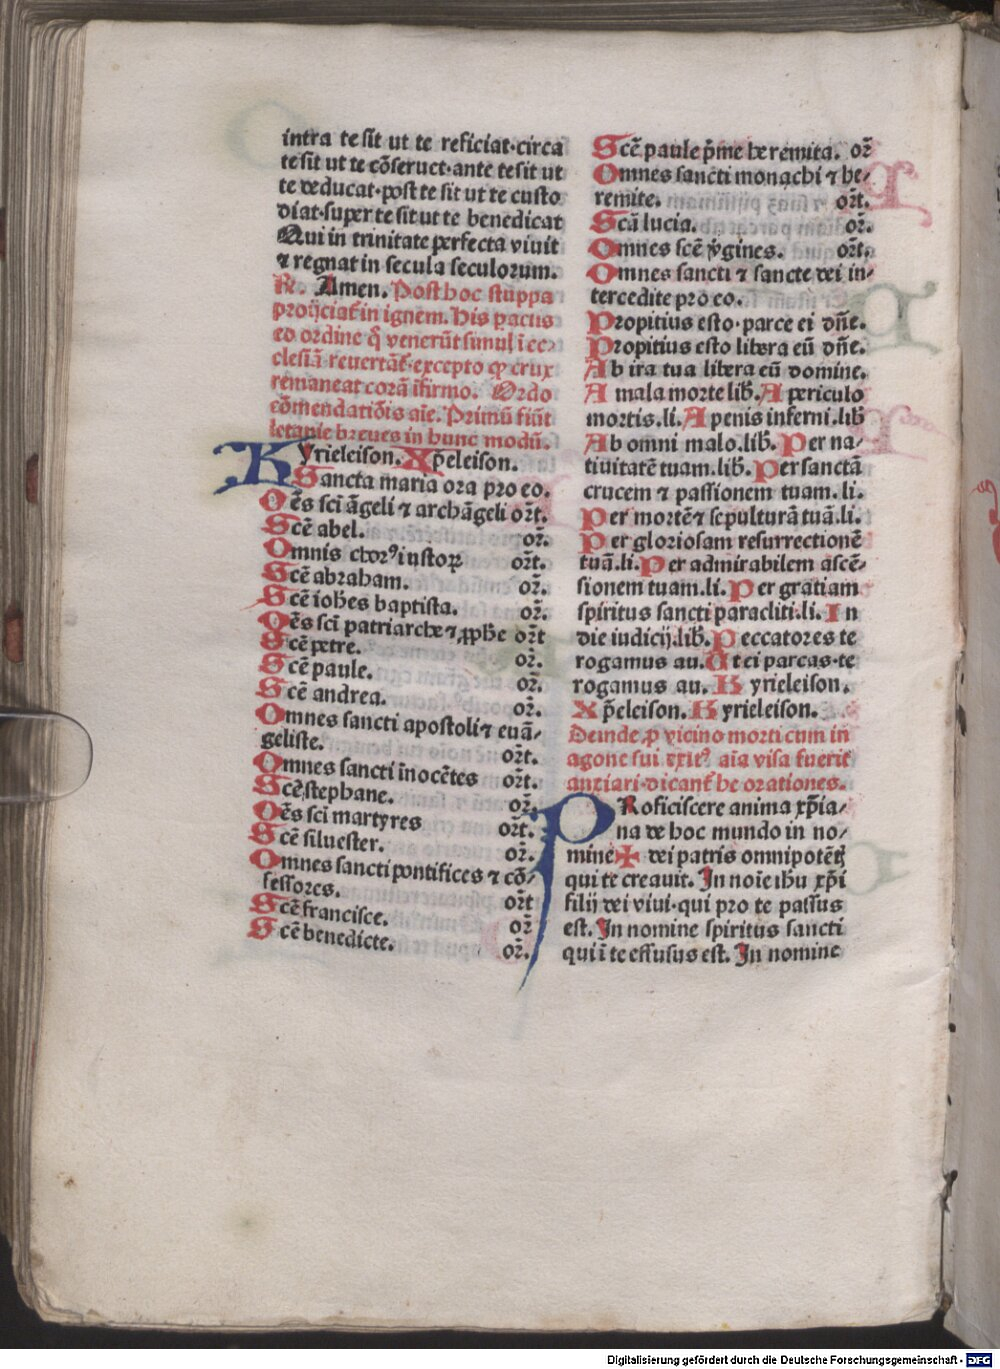 intra te sit ut te reficiat·circa
te sit ut te cōseruet·ante te sit ut
te deducat·post te sit ut te custo
diat·super te sit ut te benedicat
Qui in trinitate perfecta viuit
⁊ regnat in secula seculorum.
℟. Amen. Post hoc stuppa
proijciat̄ in ignem. His ꝑactis
eo ordine q̄ venerūt simul ī ec-
clesiā reuertāt̄·excepto ꝙ crux
remaneat corā ifirmo. Ordo
cōmendatiōis aīe. Primū fiūt
letanie breues in hunc modū.
Kyrieleison. Xp̄eleison.
Sancta maria ora pro eo.
Oēs sci āgeli ⁊ archāgeli ort̄.
Scē abel. or̄.
Omnis chorꝰ iustoꝝ ort̄.
Scē abraham. or̄.
Scē iohēs baptista. or̄.
Oēs sci patriarche ⁊ ꝓphe ort̄
Scē petre. or̄.
Scē paule. or̄.
Scē andrea. or̄.
Omnes sancti apostoli ⁊ euā-
geliste. ort̄.
Omnes sancti īnocētes ort̄.
Scē stephane. or̄.
Oēs sci martyres ort̄.
Scē siluester. or̄.
Omnes sancti pontifices ⁊ cō-
fessores. ort̄
Scē francisce. or̄
Scē benedicte. or̄.
Scē paule p̄me heremita. or̄
Omnes sancti monachi ⁊ he-
remite. ort̄.
Scā lucia. or̄.
Omnes scē v̄gines. ort̄.
Omnes sancti ⁊ sancte dei in-
tercedite pro eo.
Propitius esto·parce ei dn̄e.
Propitius esto libera eū dn̄e.
Ab ira tua libera eū domine.
A mala morte lib̄. A periculo
mortis.li. A penis inferni.lib̄
Ab omni malo.lib̄. Per na-
tiuitatē tuam.lib̄. Per sanctā
crucem ⁊ passionem tuam.li.
Per mortē ⁊ sepulturā tuā.li.
Per gloriosam resurrectionē
tuā.li. Per admirabilem ascē-
sionem tuam.li. Per gratiam
spiritus sancti paracliti.li. In
die iudicij.lib̄. Peccatores te
rogamus au. Ut ei parcas·te
rogamus au. Kyrieleison.
Xp̄eleison. Kyrieleison.
Deinde p̄ vicino morti cum in
agone sui exitꝰ aīa visa fuerit
anxiari·dicant̄ he orationes.
PRoficiscere anima xp̄ia-
na de hoc mundo in no-
mine ✠ dei patris omnipotētꝭ
qui te creauit. In noīe ihu xp̄i
filij dei viui·qui pro te passus
est. In nomine spiritus sancti
qui ī te effusus est. In nomine
Digitalisierung gefördert durch die Deutsche Forschungsgemeinschaft - DFG